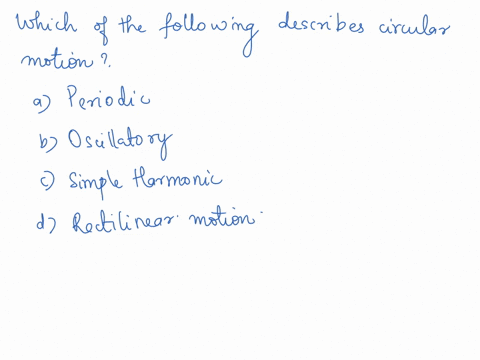 Which of the following describes circular
motion?
a) Periodic
b) Oscillatory
c) Simple Harmonic
d) Rectilinear motion